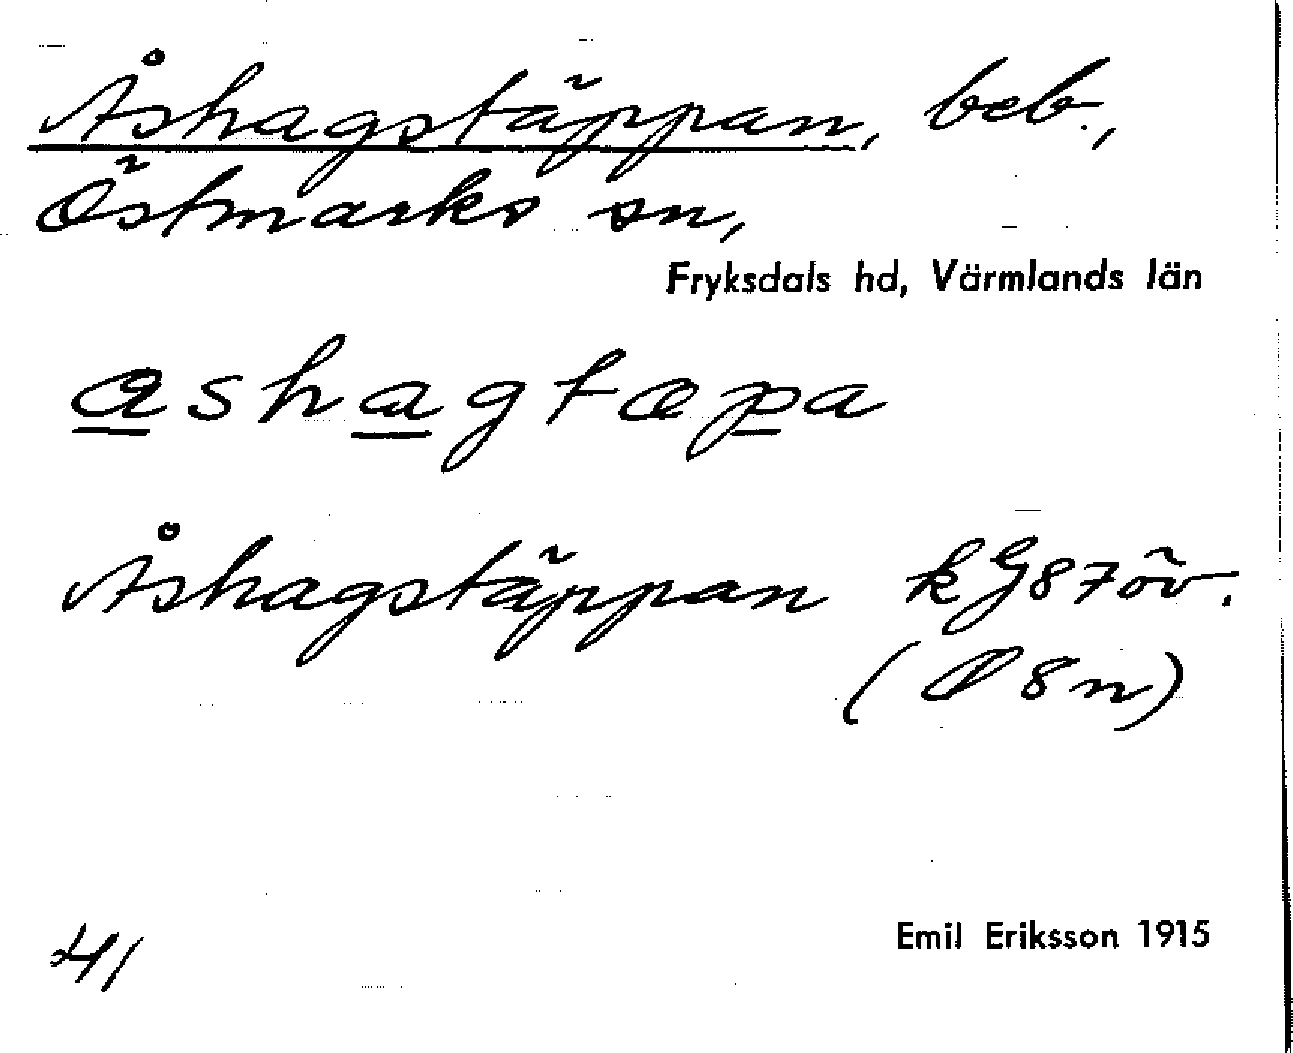 Åshagstäppan, beb.,
Östmarks sn,
Fryksdals hd, Värmlands län
ashagtæpa
Åshagstäppan kG87öv.
(O8n)
Emil Eriksson 1915
41